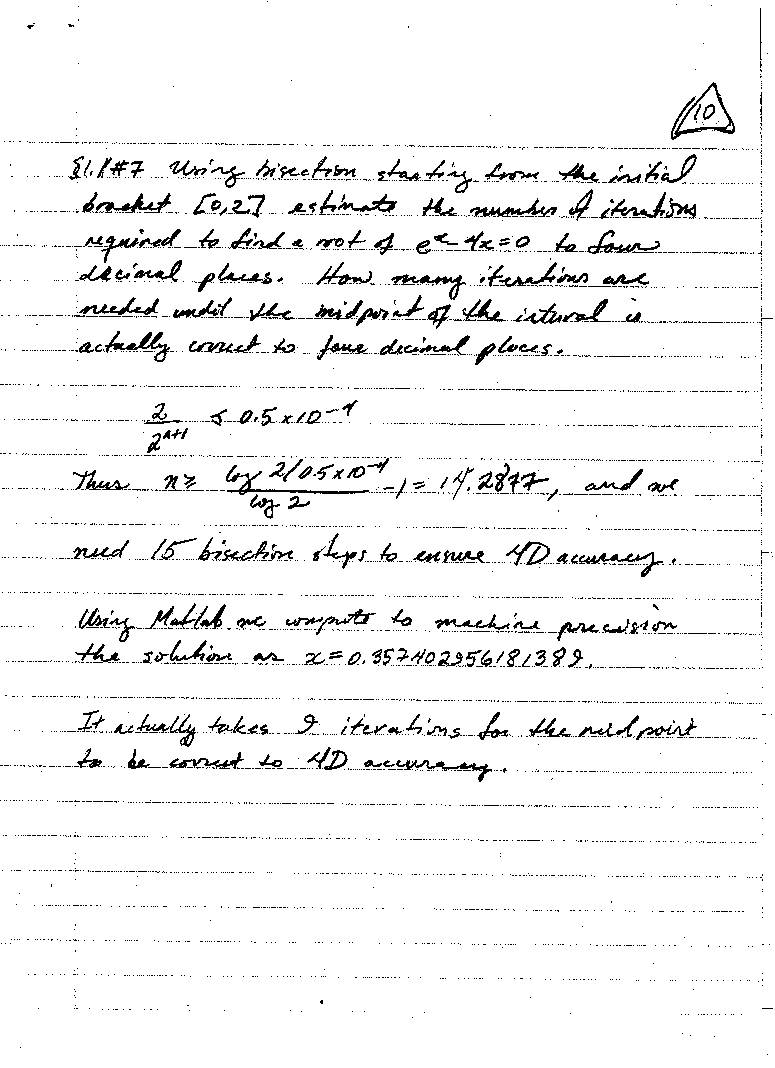 10
§1.1#7 Using bisection starting from the initial
bracket [0,2] estimate the number of iterations
required to find a root of e^x-4x=0 to four
decimal places. How many iterations are
needed until the midpoint of the interval is
actually correct to four decimal places.
2/2^{n+1} ≤ 0.5×10^{-4}
Thus n ≥ (log 2/0.5×10^{-4})/(log 2) -1 = 14.2877, and we
need 15 bisection steps to ensure 4D accuracy.
Using Matlab we compute to machine precision
the solution as x=0.357402956181389.
It actually takes 9 iterations for the midpoint
to be correct to 4D accuracy.